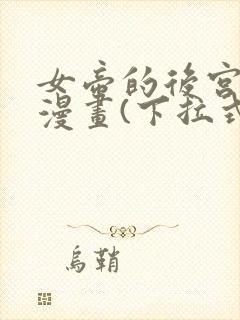 女帝的後宮
漫畫(下拉式
烏鞘